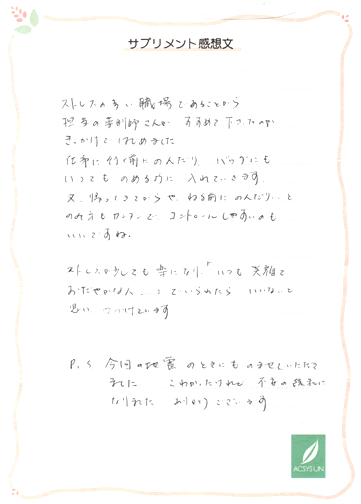 サプリメント感想文
ストレスの多い職場であることから
担当の薬剤師さんが すすめて下さったのが
きっかけではじめました
仕事に行く前にのんだり、バッグにも
いつでも のめる様に 入れていきます
又、帰ってきてからや、ねる前にのんだり…と
のみ方もカンタンで コントロールしやすいのも
いいですね。
ストレスが少しでも楽になり、「いつも 笑顔で
おだやかな人…」でいられたら いいな、と
思い つづけています
P.S 今回の地震のときにものませていただき
ました こわかったけれど 不安の緩和に
なりました ありがとうございます
ACSYSUN